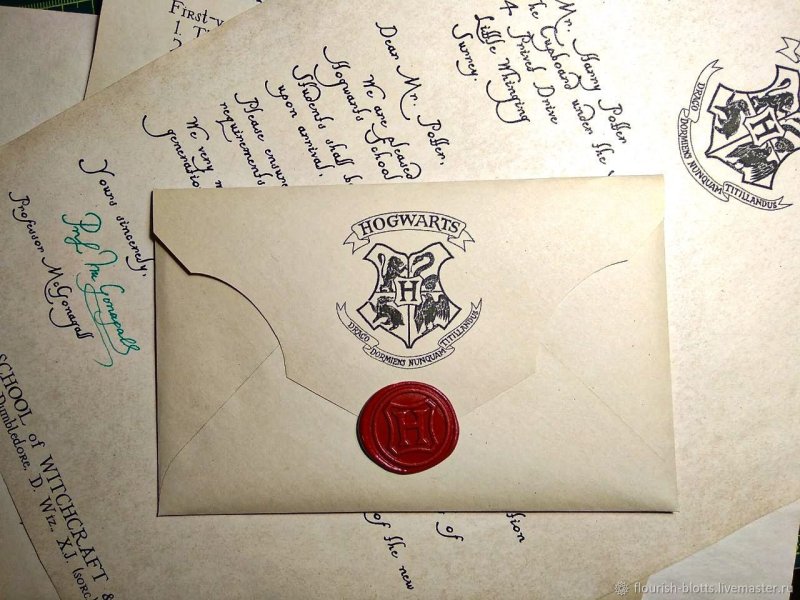 First-y
1. T
Mr. Harry Potter
The Cupboard under the
4 Privet Drive
Little Whinging
Surrey.
Dear Mr. Potter,
We are pleased
Hogwarts School
Students shall b
upon arrival,
Please ensure
requirements
We very m
generatio
Yours sincerely,
Prof. McGonagall
Professor McGonagall
SCHOOL of WITCHCRAFT &
Dumbledore, D. Wiz., X.J. (sorc
HOGWARTS
H
DRACO DORMIENS NUNQUAM TITILLANDUS
H
H
DRACO DORMIENS NUNQUAM TITILLANDUS
of
ssion
of the new
flourish-blotts.livemaster.ru